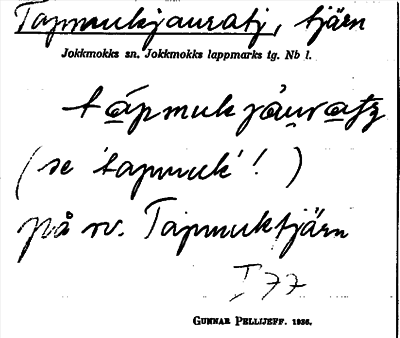 Tapmukjauratj, tjärn
Jokkmokks sn. Jokkmokks lappmarks tg. Nb l.
tápmukjáuratj
(se 'tapmuk'! )
på sv. Tapmuktjärn
I 77
GUNNAR PELLIJEFF. 1936.